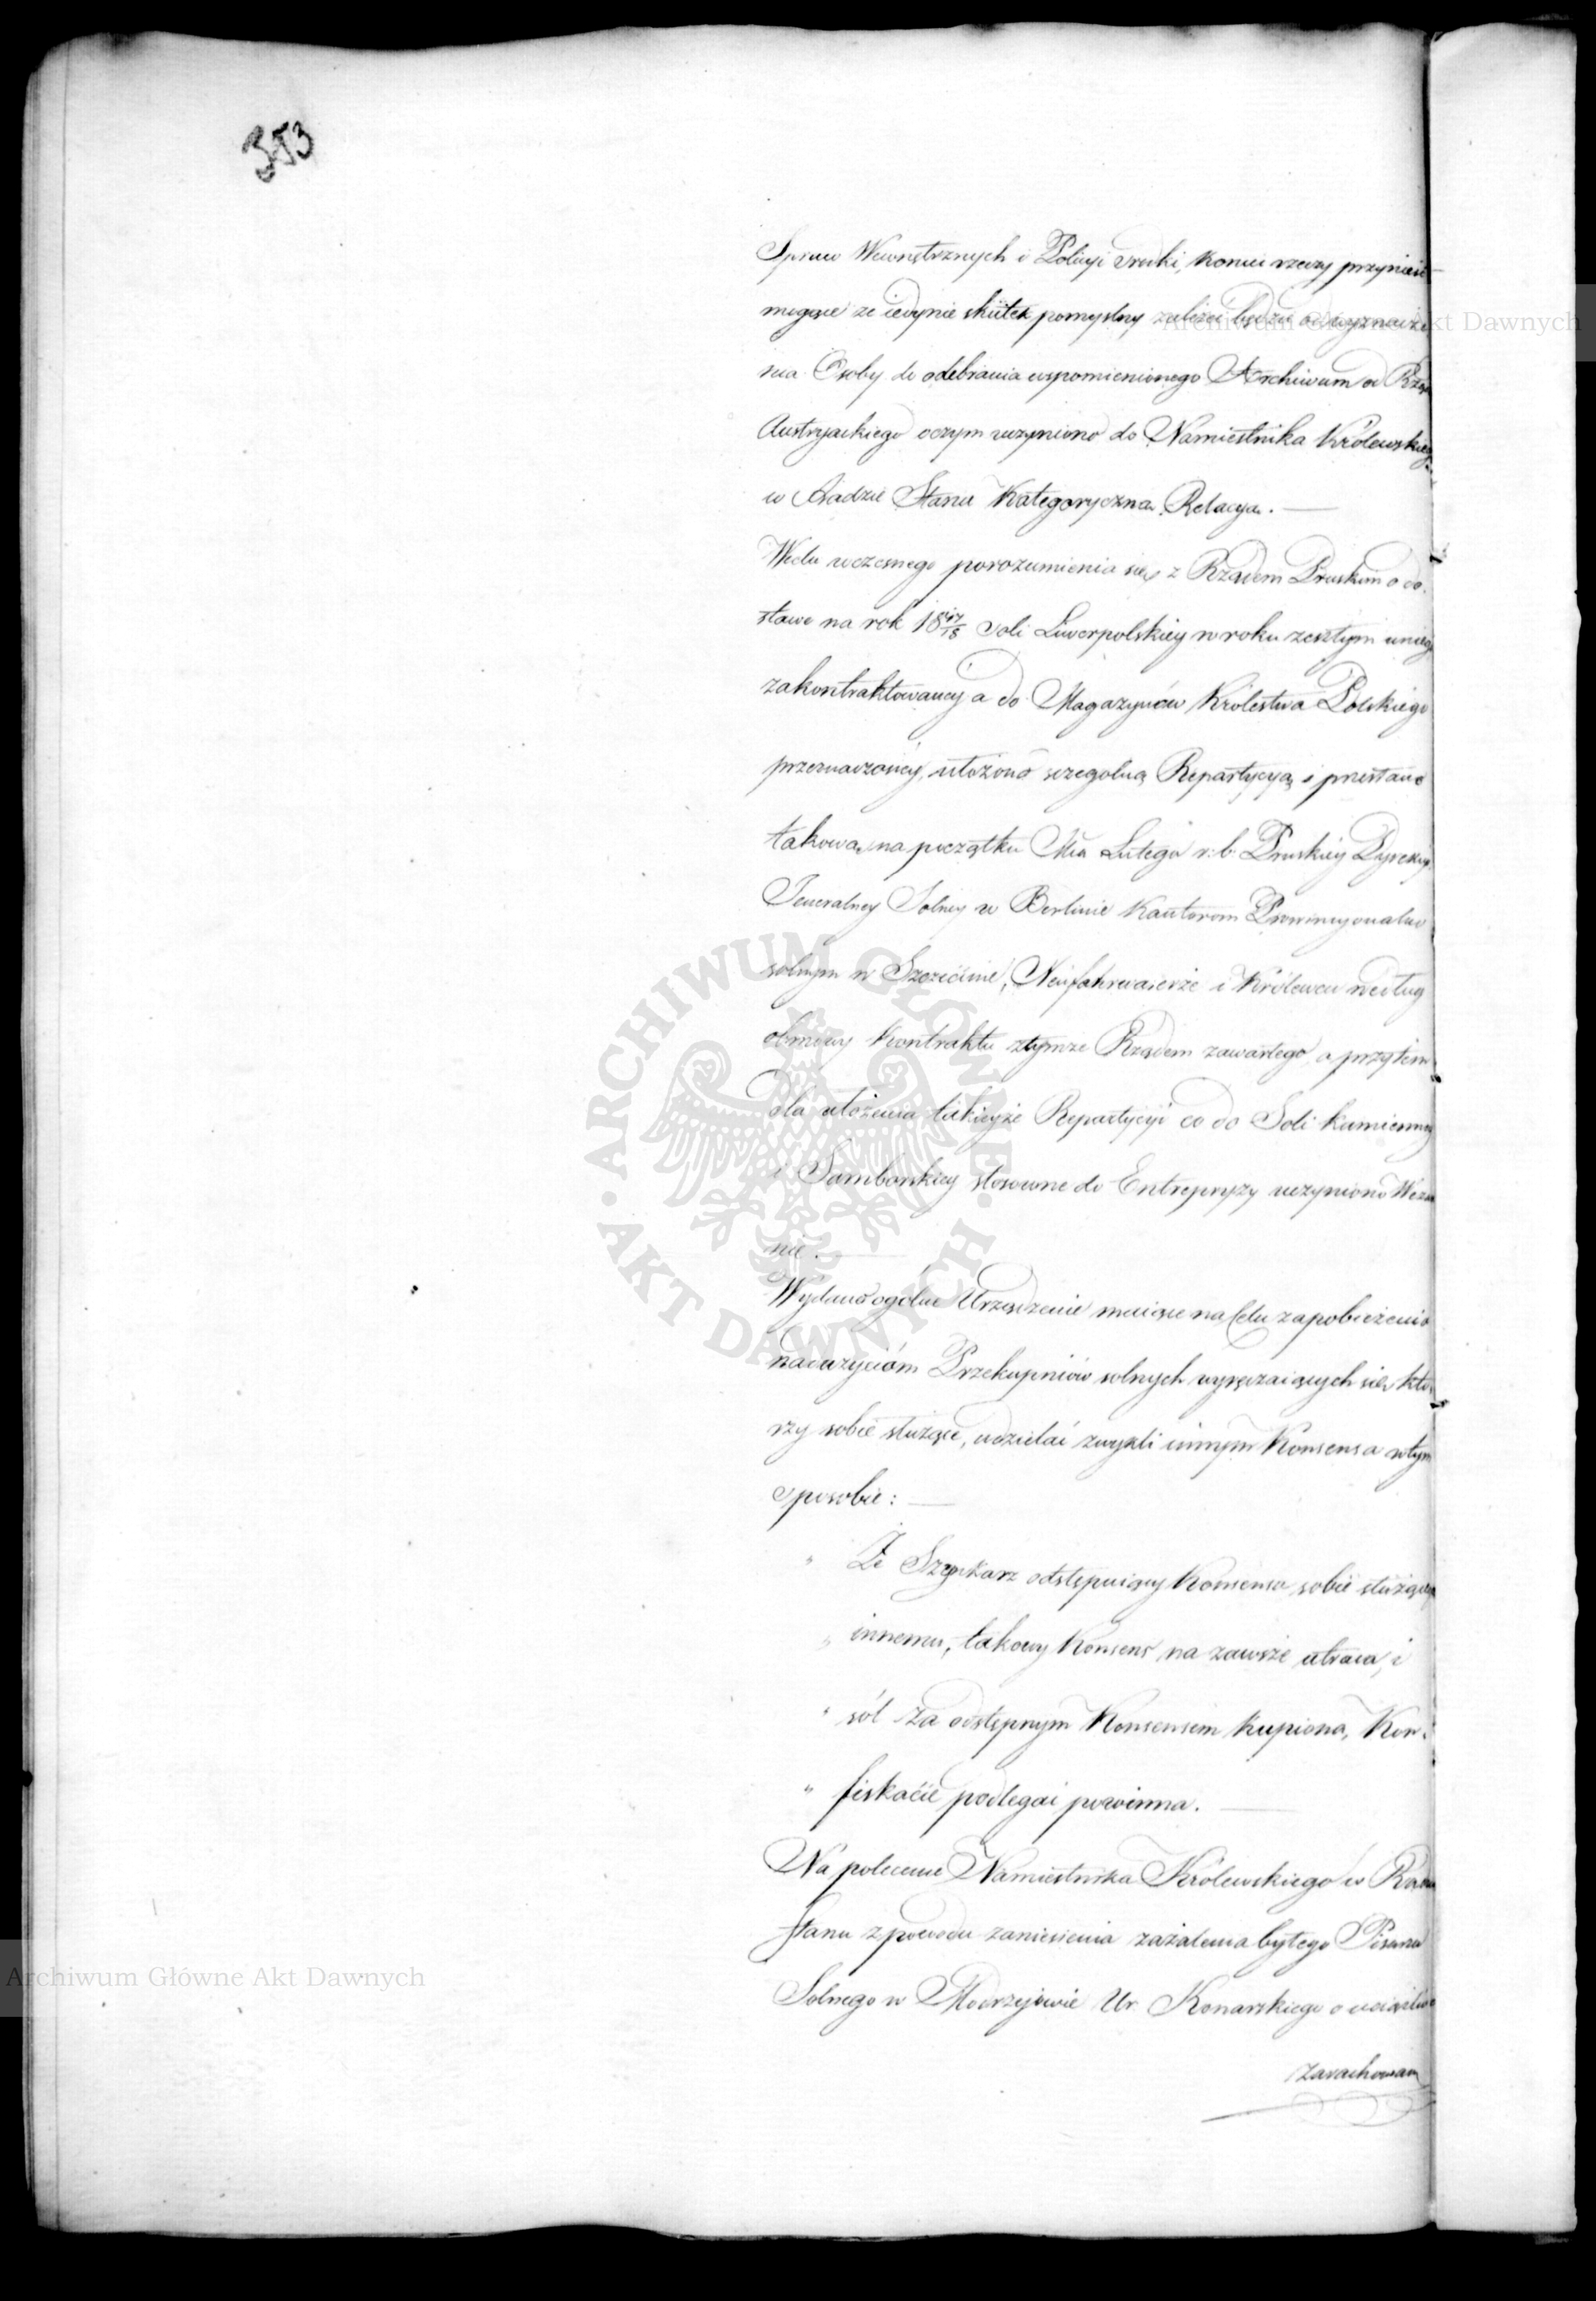 353
Spraw Wewnętrznych i Policyi środki, koniec rzeczy przynieść
mogące że iedynie skutek pomyslny zależeć będzie od wyznacze
nia Osoby do odebrania wspomienionego Archiwum od Rządu
Austryackiego oczym uczyniono do Namiestnika Królewskieg
w Radzie Stanu Kategoryczną Relacyą. —
Wcelu wczesnego porozumienia się z Rządem Pruskim o do
stawę na rok 18 17/18 Soli Liwerpolskiey w roku zeszłym u niego
zakontraktowaney a do Magazynów Królestwa Polskiego
przeznaczoney, ułożono szczegolną Repartycyą i przesłano
takową na początku Mca Lutego r. b. Pruskiey Dyrekcyi
Jeneralney Solney w Berlinie Kantorom Prowincyonalno
solnym w Szczecinie, Neufahrwaserze i Królewcu według
obmowy Kontraktu ztymże Rządem zawartego, a przytem
dla ułożenia takieyże Repartycyi co do Soli kamienney
i Samborskiey stosowne do Entrepryzy uczyniono Wezwa
nie. —
Wydano ogólne Urządzenie maiące na Celu zapobieżenie
nadużyciom Przekupniów solnych wyręczaiących się, któ
rzy sobie służące, udzielać zwykli innym Konsensa wtym
sposobie: —
" Że Szynkarz odstępuiący Konsensu sobie służącego
" innemu, takowy Konsens na zawsze utraca, i
" sól za odstępnym Konsensem kupiona, Kon
" fiskacie podlegać powinna. —
Na polecenie Namiestnika Królewskiego w Radzie
Stanu z powodu zaniesienia zażalenia byłego Pisarza
Solnego w Modrzejowie Ur. Konarskiego o uciążliwe
zarachowan
Archiwum Główne Akt Dawnych
Archiwum Główne Akt Dawnych
ARCHIWUM GŁÓWNE · AKT DAWNYCH ·